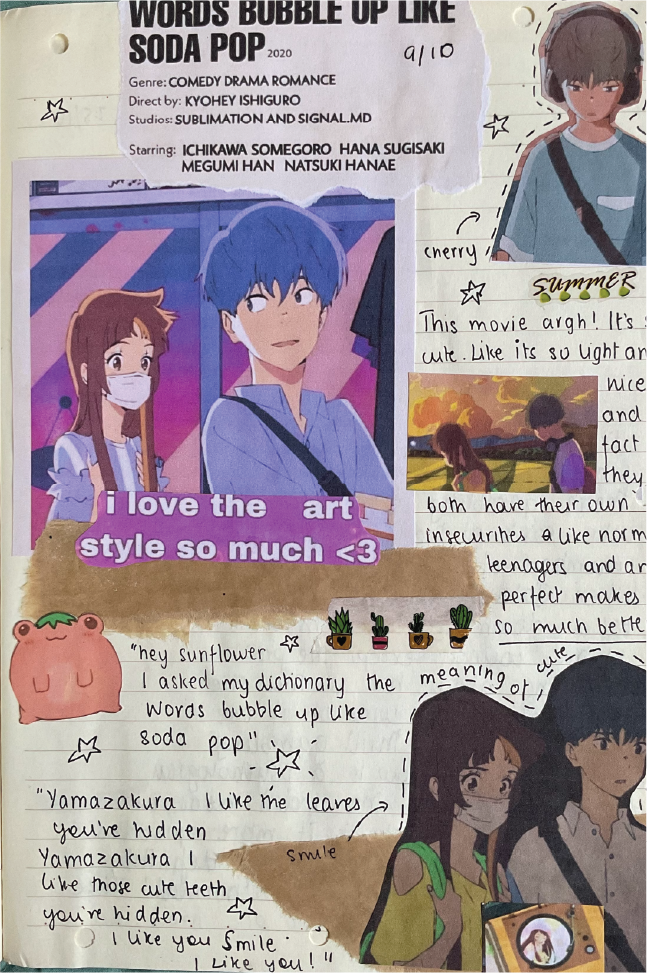 WORDS BUBBLE UP LIKE
SODA POP 2020
9/10
Genre: COMEDY DRAMA ROMANCE
Direct by: KYOHEY ISHIGURO
Studios: SUBLIMATION AND SIGNAL.MD
Starring: ICHIKAWA SOMEGORO HANA SUGISAKI
MEGUMI HAN NATSUKI HANAE
cherry
SUMMER
This movie argh! It's
cute. Like its so light an
nice
and
fact
they
both have their own
insecurities & like norm
teenagers and ar
perfect makes
so much bette
i love the art
style so much <3
"hey sunflower
I asked my dictionary the
words bubble up like
soda pop"
meaning of cute
"Yamazakura I like the leaves
you've hidden
Yamazakura I
like those cute teeth
you've hidden.
I like you Smile
I Like you!"
smile